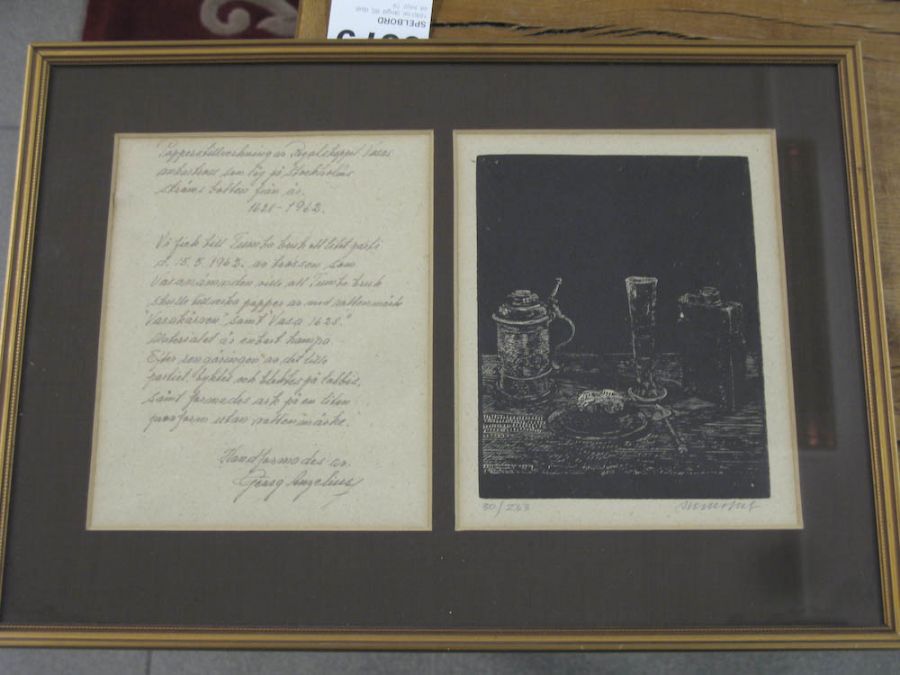 SPELBORD
Papperstillverkning av Regalskeppet Vasas
som låg på Stockholms
ströms botten från år
1628-1962.
Vi fick till Tumba bruk ett litet parti
d. 15.3.1962. av trossen som
Vasanämnden ville att Tumba bruk
skulle tillverka papper av med vattenmärke
"Vasakärven" samt "Vasa 1628."
Materialet är enbart hampa.
Efter rengöringen av det lilla
partiet, och blektes på labbis,
samt formades ark på en liten
utan vattenmärke.
Handformades av.
Georg
30/263